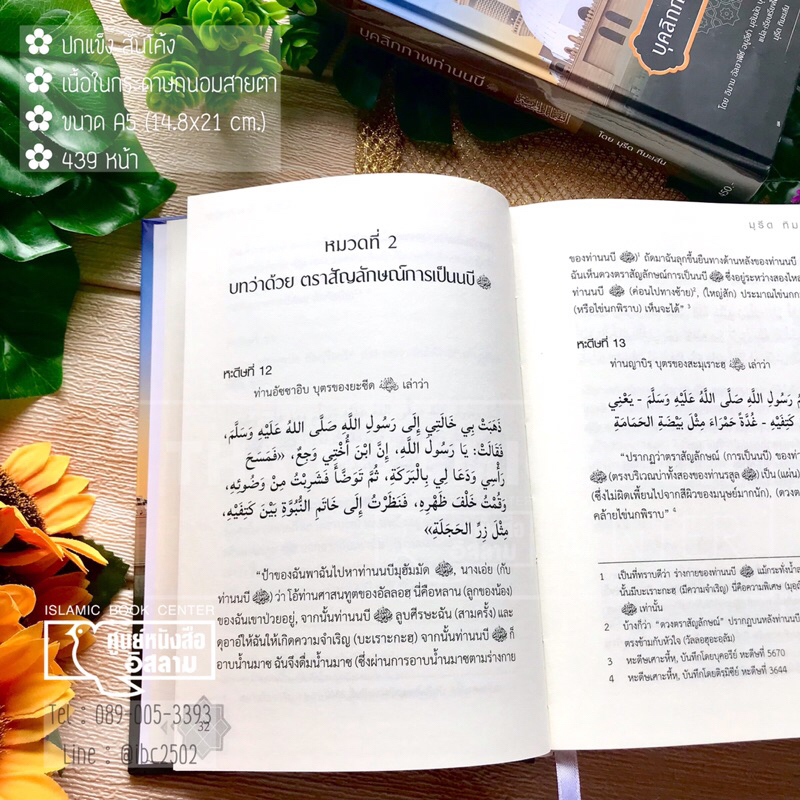 ปกแข็ง สันโค้ง
เนื้อในกระดาษถนอมสายตา
ขนาด A5 (14.8x21 cm.)
439 หน้า
บุคลิกภาพท่านนบี
โดย มุรีด ทิมะเสน
หมวดที่ 2
บทว่าด้วย ตราสัญลักษณ์การเป็นนบี ﷺ
หะดีษที่ 12
ท่านอัซซาอิบ บุตรของยะซีด เล่าว่า
ذَهَبَتْ بِي خَالَتِي إِلَى رَسُولِ اللَّهِ صَلَّى اللهُ عَلَيْهِ وَسَلَّمَ،
فَقَالَتْ: يَا رَسُولَ اللَّهِ، إِنَّ ابْنَ أُخْتِي وَجِعٌ، «فَمَسَحَ
رَأْسِي وَدَعَا لِي بِالْبَرَكَةِ، ثُمَّ تَوَضَّأَ فَشَرِبْتُ مِنْ وَضُوئِهِ،
وَقُمْتُ خَلْفَ ظَهْرِهِ، فَنَظَرْتُ إِلَى خَاتَمِ النُّبُوَّةِ بَيْنَ كَتِفَيْهِ،
مِثْلَ زِرِّ الحَجَلَةِ»
"ป้าของฉันพาฉันไปหาท่านนบีมุฮัมมัด ﷺ, นางเอ่ย (กับ
ท่านนบี ﷺ) ว่า โอ้ท่านศาสนทูตของอัลลอฮฺ นี่คือหลาน (ลูกของน้อง)
ของฉันเขาป่วยอยู่, จากนั้นท่านนบี ﷺ ลูบศีรษะฉัน (สามครั้ง) และ
ดุอาอ์ให้ฉันให้เกิดความจำเริญ (บะเราะกะฮฺ) จากนั้นท่านนบี ﷺ ก็
อาบน้ำนมาซ ฉันจึงดื่มน้ำนมาซ (ซึ่งผ่านการอาบน้ำนมาซตามร่างกาย
32
มุรีด ทิม
ของท่านนบี ﷺ)¹ ถัดมาฉันลุกขึ้นยืนทางด้านหลังของท่านนบี
ฉันเห็นดวงตราสัญลักษณ์การเป็นนบี ﷺ ซึ่งอยู่ระหว่างสองไหล่
ท่านนบี ﷺ (ค่อนไปทางซ้าย)², (ใหญ่สัก) ประมาณไข่นกก
(หรือไข่นกพิราบ) เห็นจะได้" ³
หะดีษที่ 13
ท่านญาบิรฺ บุตรของสะมุเราะฮฺ เล่าว่า
رَسُولِ اللَّهِ صَلَّى اللَّهُ عَلَيْهِ وَسَلَّمَ - يَعْنِي
كَتِفَيْهِ - غُدَّةً حَمْرَاءَ مِثْلَ بَيْضَةِ الْحَمَامَةِ
"ปรากฏว่าตราสัญลักษณ์ (การเป็นนบี) ของท่า
ﷺ (ตรงบริเวณบ่าทั้งสองของท่านรสูล ﷺ) เป็น (แผ่น)
(ซึ่งไม่ผิดเพี้ยนไปจากสีผิวของมนุษย์มากนัก), (ดวงต
คล้ายไข่นกพิราบ" ⁴
1 เป็นที่ทราบดีว่า ร่างกายของท่านนบี ﷺ แม้กระทั่งน้ำล
นั้นมีบะเราะกะฮฺ (มีความจำเริญ) นี่คือความพิเศษ
ﷺ เท่านั้น
2 บ้างก็ว่า "ดวงตราสัญลักษณ์" ปรากฏบนหลังท่านนบี
ตรงข้ามกับหัวใจ (วัลลอฮุอะอฺลัม)
3 หะดีษเศาะหี้หฺ, บันทึกโดยบุคอรีย์ หะดีษที่ 5670
4 หะดีษเศาะหี้หฺ, บันทึกโดยติรมิซีย์ หะดีษที่ 3644
ISLAMIC BOOK CENTER
ศูนย์หนังสือ
อิสลาม
Tel : 089-005-3393
Line : @ibc2502